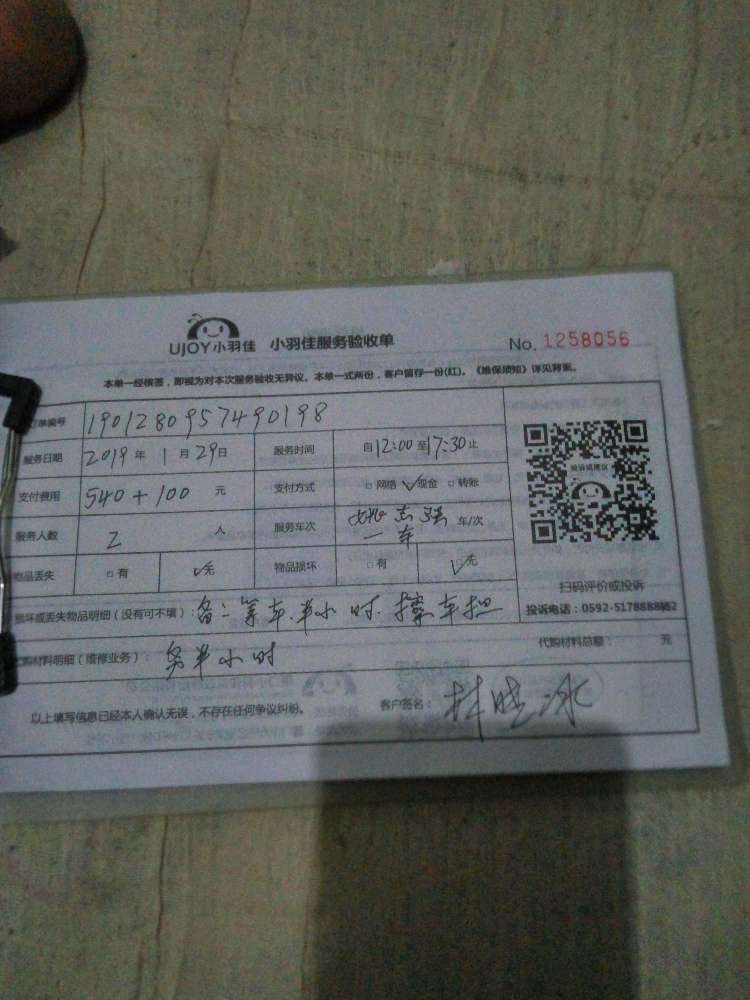 UJOY小羽佳 小羽佳服务验收单 No. 1258056
本单一经核签，即视为对本次服务验收无异议。本单一式两份，客户留存一份(红)。《维保须知》详见背面。
订单编号 1901280957490198
服务日期 2019 年 1 月 29 日 服务时间 自 12:00 至 17:30 止
支付费用 540+100 元 支付方式 □网络 ✓现金 □转账
服务人数 2 人 服务车次 志强 一车 车/次
物品丢失 □有 ✓无 物品损坏 □有 ✓无
投诉或建议
扫码评价或投诉
投诉电话：0592-5178888
损坏或丢失物品明细（没有可不填）： 备：等车.半小时.
代购材料明细（维修业务）： 半小时 代购材料总额： 元
以上填写信息已经本人确认无误，不存在任何争议纠纷。 客户签名： 林晓冰